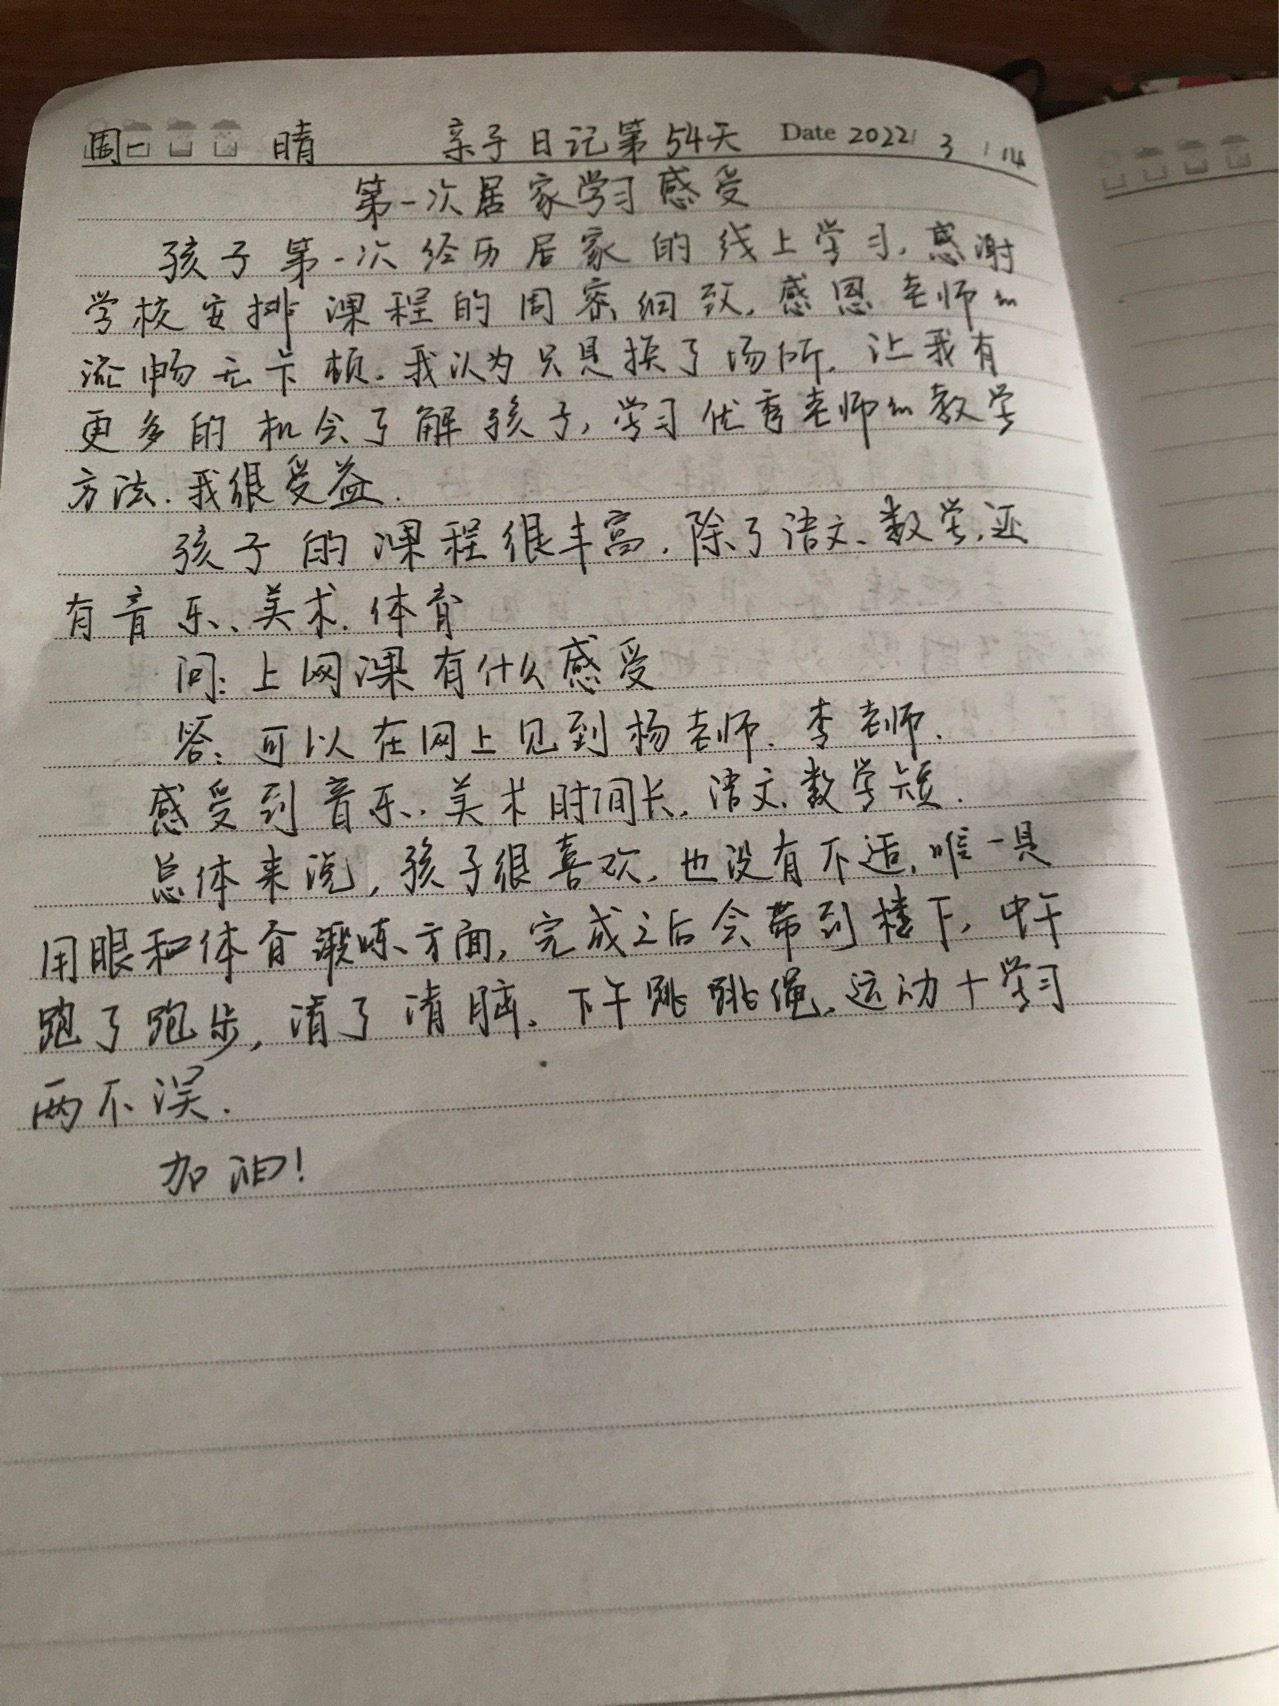 周一 晴 亲子日记第54天 Date 2022/3/14
第一次居家学习感受
孩子第一次经历居家的线上学习,感谢
学校安排课程的周密细致,感恩老师的
流畅无卡顿.我认为只是换了场所,让我有
更多的机会了解孩子,学习优秀老师的教学
方法.我很受益.
孩子的课程很丰富,除了语文、数学,还
有音乐、美术、体育
问:上网课有什么感受
答:可以在网上见到杨老师、李老师.
感受到音乐、美术时间长,语文、数学短.
总体来说,孩子很喜欢,也没有不适,唯一是
用眼和体育锻炼方面,完成之后会带到楼下,中午
跑了跑步,清了清脑,下午跳跳绳,运动+学习
两不误.
加油!